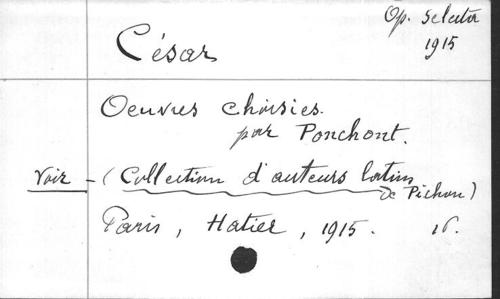 Op. selecta
1915
César
Oeuvres choisies.
par Ponchont.
Voir - (Collection d'auteurs latins
de Pichon)
Paris, Hatier, 1915. 16.